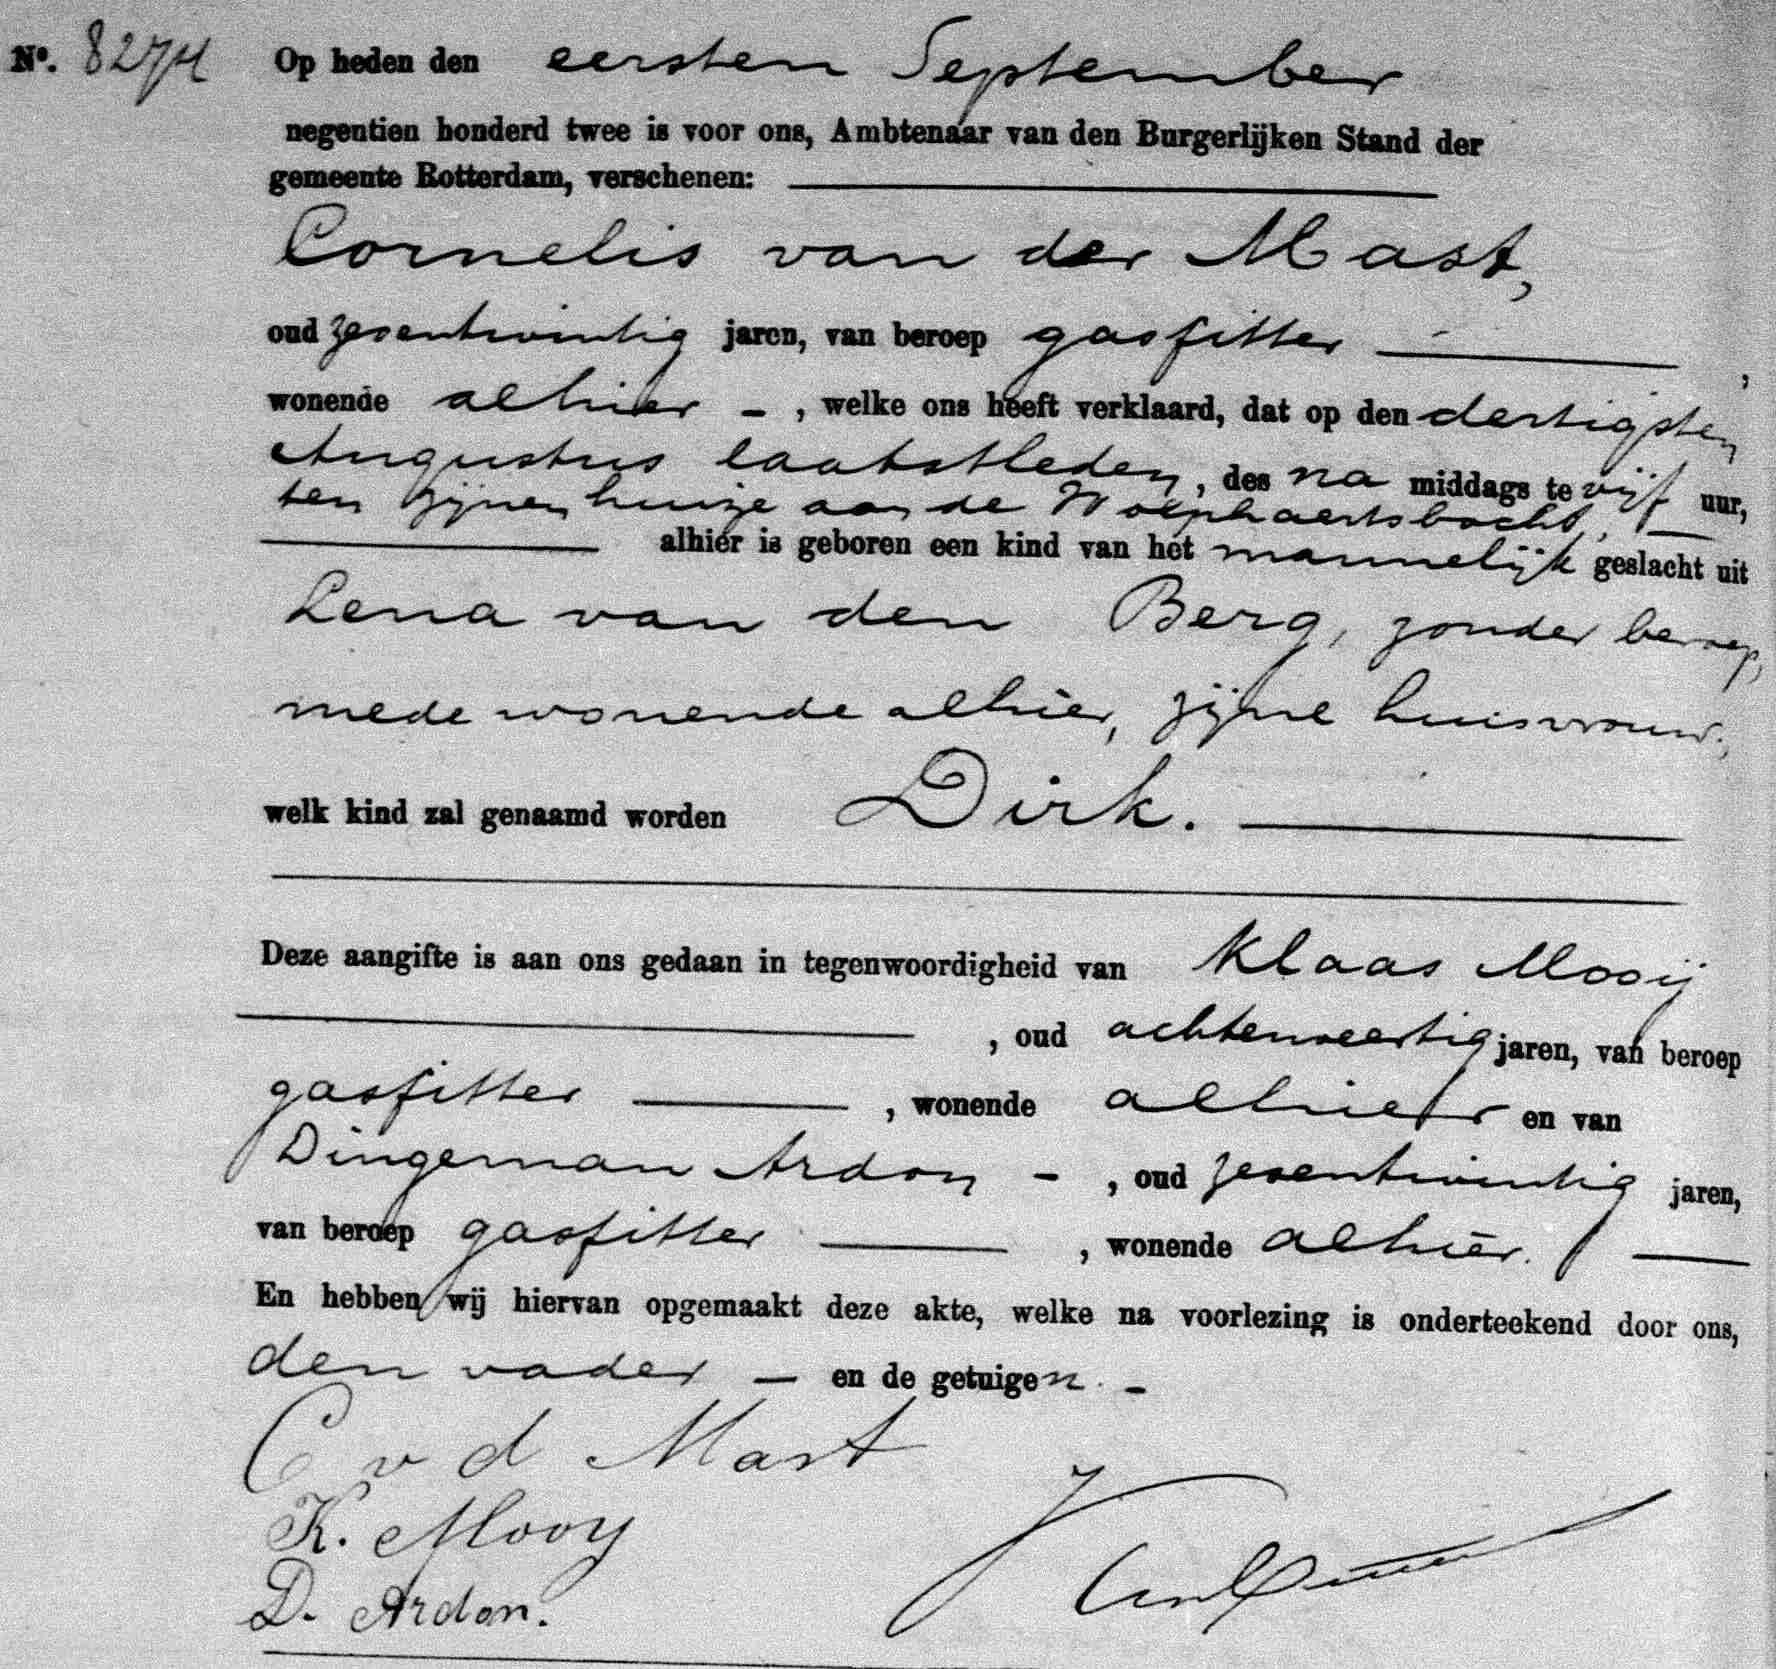 No. 8274 Op heden den eersten September
negentien honderd twee is voor ons, Ambtenaar van den Burgerlijken Stand der
gemeente Rotterdam, verschenen:
Cornelis van der Mast,
oud zeventwintig jaren, van beroep gasfitter ,
wonende alhier - , welke ons heeft verklaard, dat op den dertigsten
Augustus laatstleden, des na middags te vijf uur,
ten zijnen huize aan de Wolphaertsbocht,
alhier is geboren een kind van het mannelijk geslacht uit
Lena van den Berg, zonder beroep,
mede wonende alhier, zijne huisvrouw;
welk kind zal genaamd worden Dirk.
Deze aangifte is aan ons gedaan in tegenwoordigheid van Klaas Mooij
, oud achtenveertig jaren, van beroep
gasfitter , wonende alhier en van
Dingeman Ardon - , oud zeventwintig jaren,
van beroep gasfitter , wonende alhier.
En hebben wij hiervan opgemaakt deze akte, welke na voorlezing is onderteekend door ons,
den vader - en de getuigen. -
C v d Mast
K. Mooy
D. Ardon.